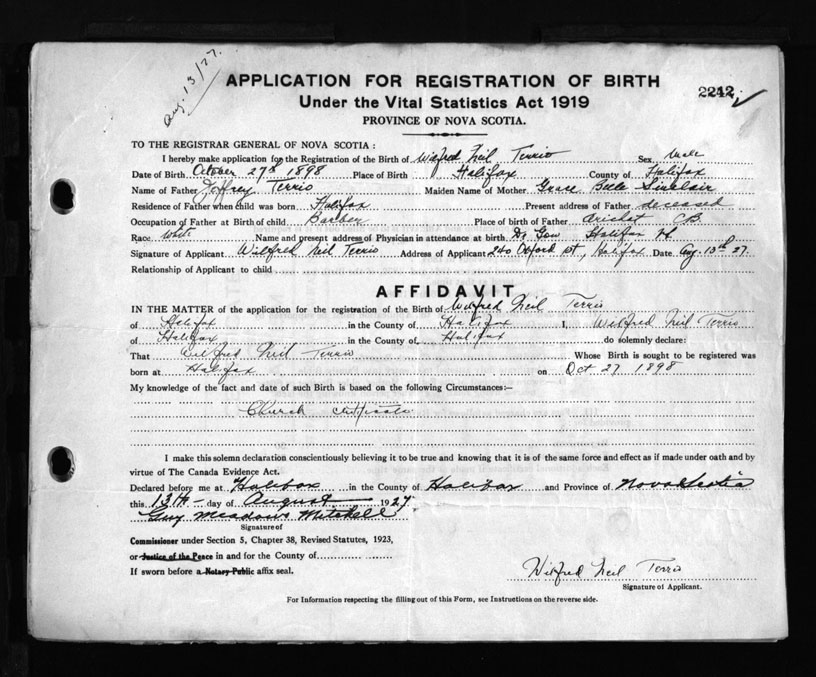 Aug. 13/27.
APPLICATION FOR REGISTRATION OF BIRTH
2242
Under the Vital Statistics Act 1919
PROVINCE OF NOVA SCOTIA.
TO THE REGISTRAR GENERAL OF NOVA SCOTIA :
I hereby make application for the Registration of the Birth of Wilfred Neil Terrio Sex Male
Date of Birth October 27th 1898 Place of Birth Halifax County of Halifax
Name of Father Jeffrey Terrio Maiden Name of Mother Grace Belle Sinclair
Residence of Father when child was born Halifax Present address of Father deceased
Occupation of Father at Birth of child Barber Place of birth of Father Arichat CB
Race White Name and present address of Physician in attendance at birth Dr Gow Halifax NS
Signature of Applicant Wilfred Neil Terrio Address of Applicant 240 Oxford St, Halifax Date Aug. 13th 27
Relationship of Applicant to child
AFFIDAVIT
IN THE MATTER of the application for the registration of the Birth of Wilfred Neil Terrio
of Halifax in the County of Halifax I, Wilfred Neil Terrio
of Halifax in the County of Halifax do solemnly declare:
That Wilfred Neil Terrio Whose Birth is sought to be registered was
born at Halifax on Oct 27 1898
My knowledge of the fact and date of such Birth is based on the following Circumstances:—
Church Certificate
I make this solemn declaration conscientiously believing it to be true and knowing that it is of the same force and effect as if made under oath and by
virtue of The Canada Evidence Act.
Declared before me at Halifax in the County of Halifax and Province of Nova Scotia
this 13th day of August 1927
Guy Meadows Mitchell
Signature of
Commissioner under Section 5, Chapter 38, Revised Statutes, 1923,
or Justice of the Peace in and for the County of
If sworn before a Notary Public affix seal.
Wilfred Neil Terrio
Signature of Applicant.
For Information respecting the filling out of this Form, see Instructions on the reverse side.